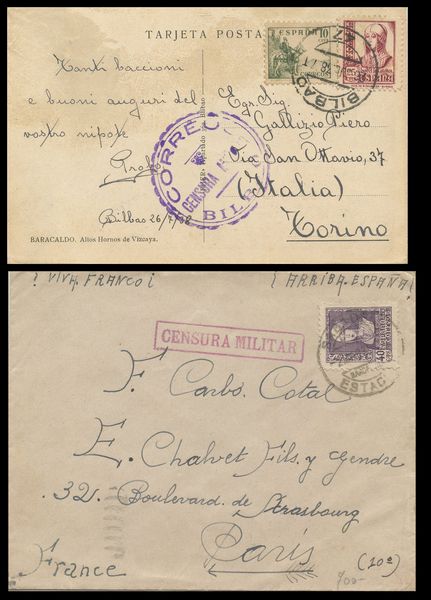 TARJETA POSTA
ESPAÑA
10
CORREOS
BILBAO
Tanti baccioni
e buoni auguri del
vostro nipote
Bilbao 26/7/38
BARACALDO. Altos Hornos de Vizcaya.
CORREO
CENSURA
BILB
Egr. Sig.
Gallizio Piero
Via San Ottavio, 37
(Italia)
Torino
¡ VIVA. FRANCO ¡
¡ ARRIBA. ESPAÑA ¡
CENSURA MILITAR
40
ESTAC
F.
Carbs. Cotal
E. Chalvet Fils. y Gendre
32. Boulevard. de Strasbourg
Paris
(10e)
France
700-